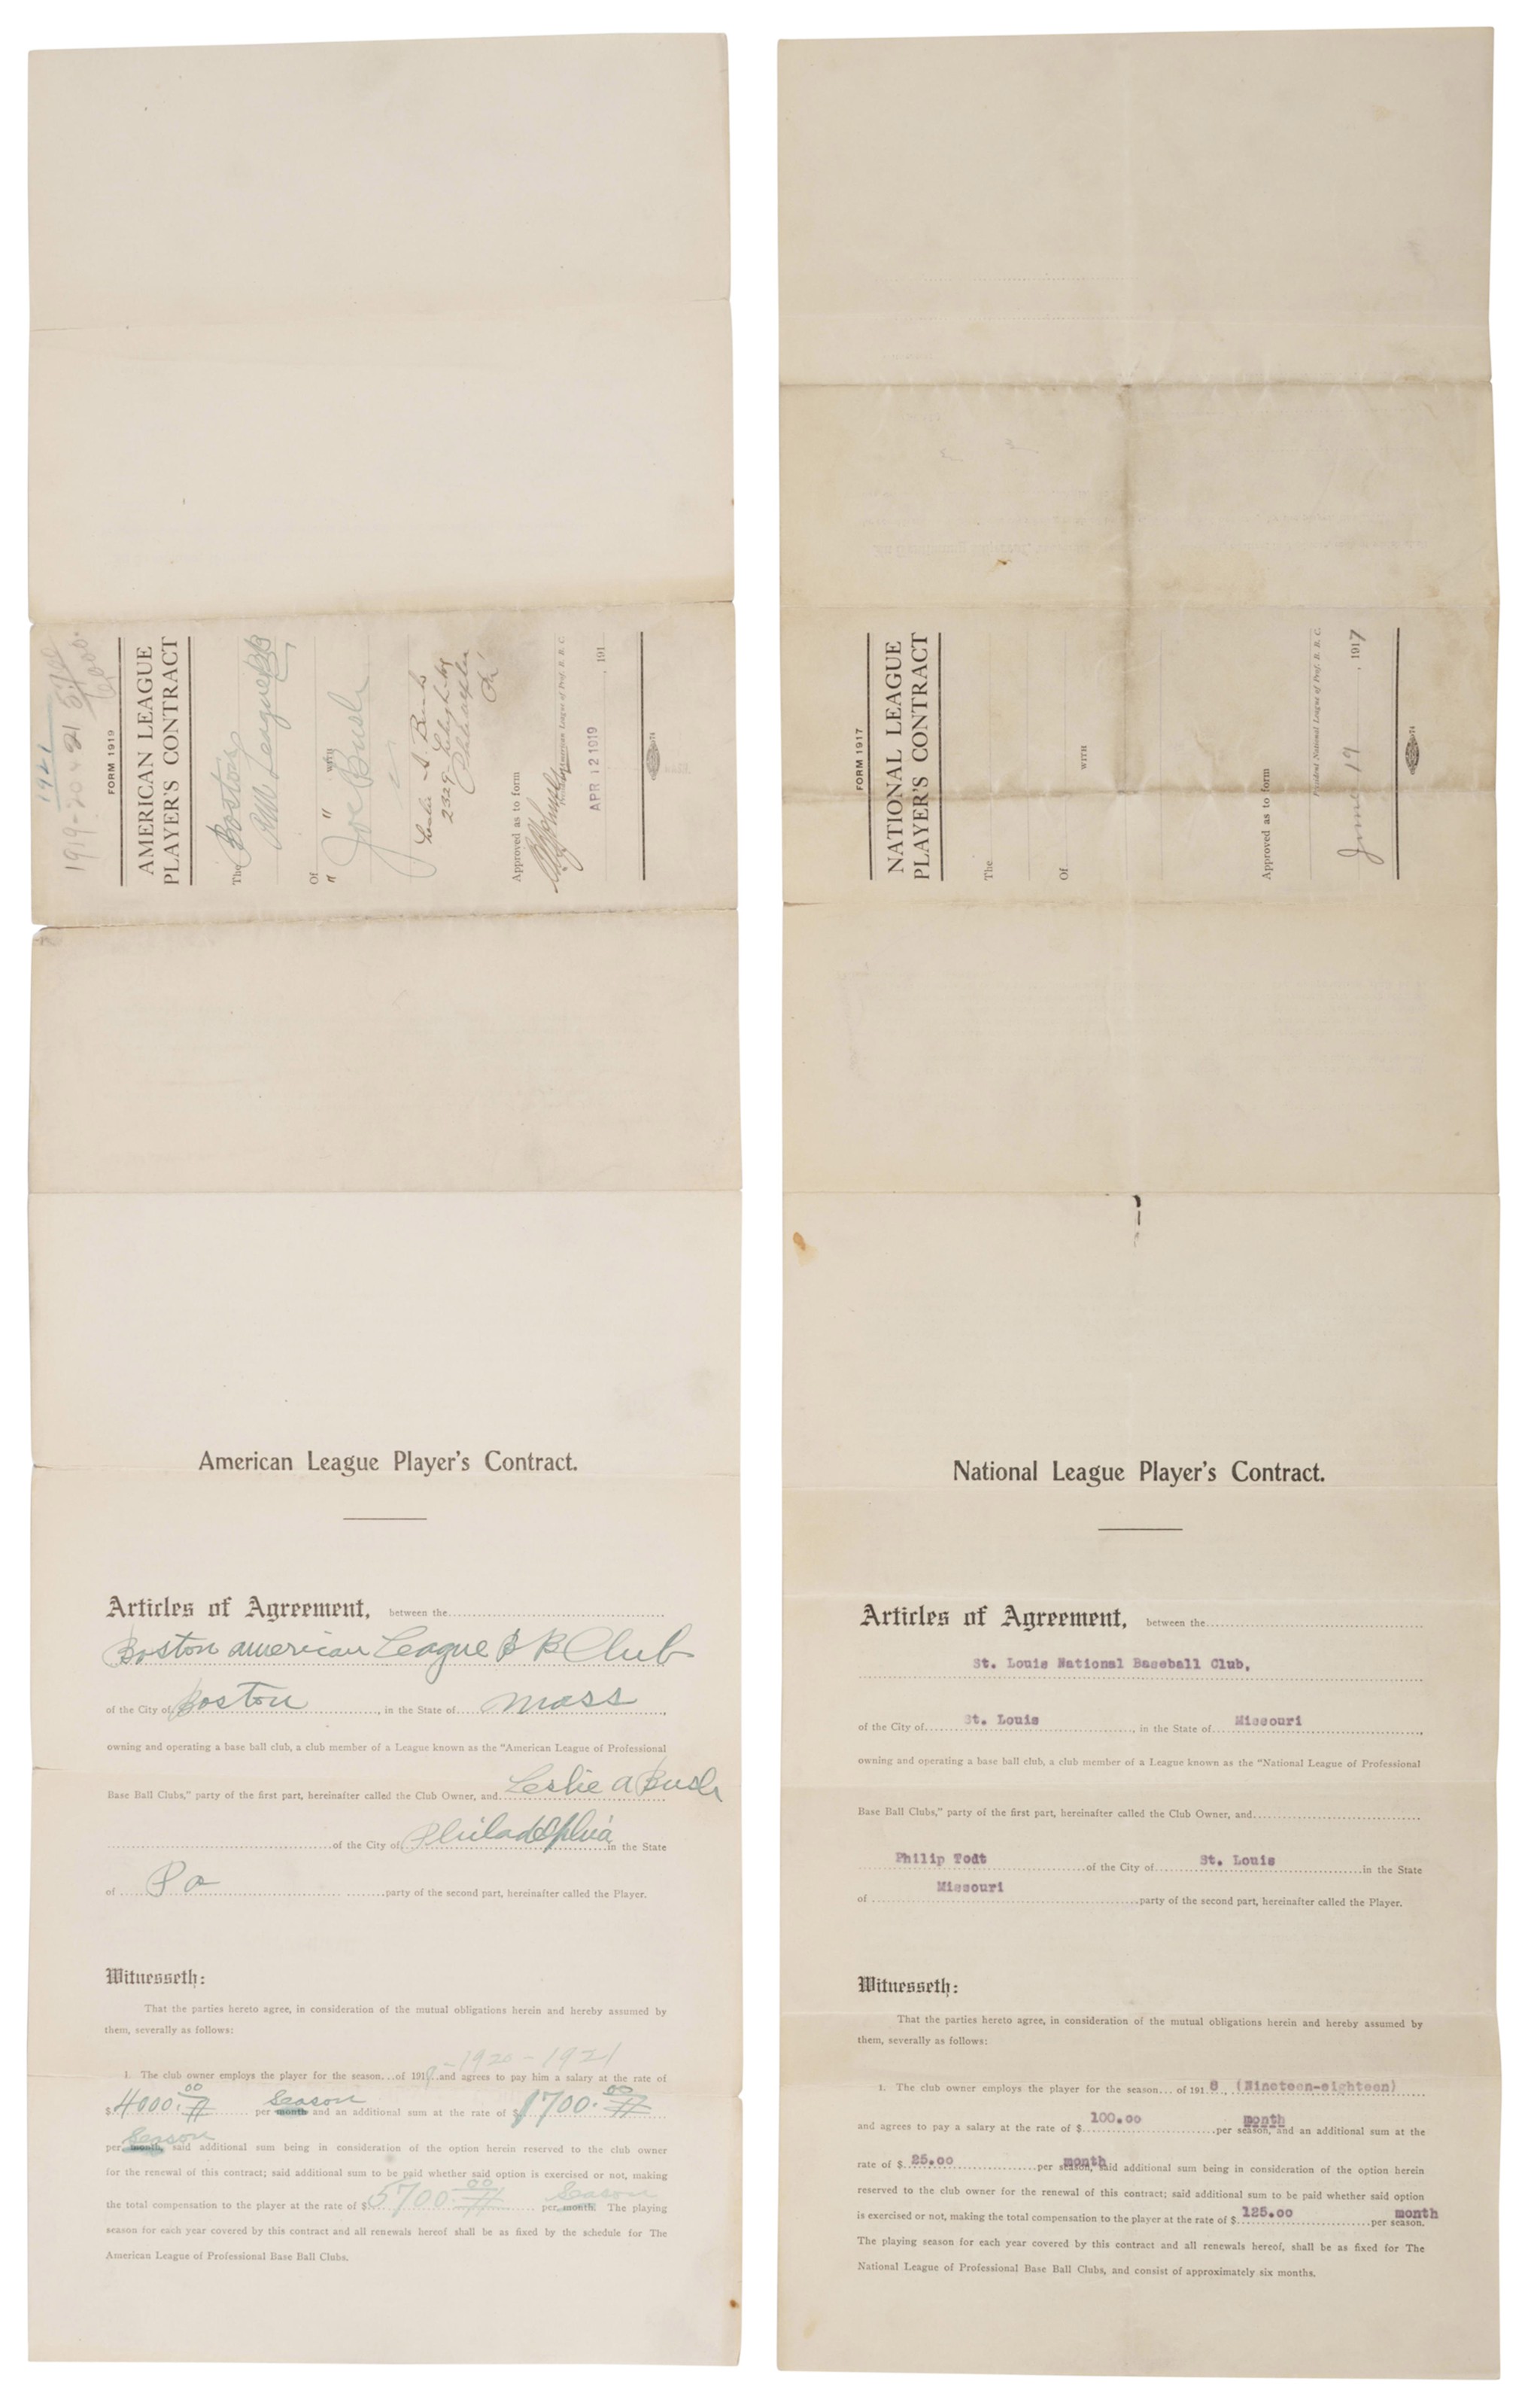 1921
1919-20 & 21
FORM 1919
AMERICAN LEAGUE
PLAYER'S CONTRACT
The Boston
Am League BB
Of
" " WITH "
Joe Bush
Leslie A. Bush
2329 Lehigh Av
Philadelphia
Pa
Approved as to form
American League of Prof. B. B. C.
APR 12 1919 , 191
American League Player's Contract.
Articles of Agreement, between the
Boston American League B B Club
of the City of Boston , in the State of Mass ,
owning and operating a base ball club, a club member of a League known as the "American League of Professional
Base Ball Clubs," party of the first part, hereinafter called the Club Owner, and Leslie A Bush
of the City of Philadelphia in the State
of Pa party of the second part, hereinafter called the Player.
Witnesseth:
That the parties hereto agree, in consideration of the mutual obligations herein and hereby assumed by
them, severally as follows:
1. The club owner employs the player for the season...of 1919 -1920 - 1921 and agrees to pay him a salary at the rate of
$4000.00 per month Season and an additional sum at the rate of $1700.00
per month, Season said additional sum being in consideration of the option herein reserved to the club owner
for the renewal of this contract; said additional sum to be paid whether said option is exercised or not, making
the total compensation to the player at the rate of $5700.00 per month. Season The playing
season for each year covered by this contract and all renewals hereof shall be as fixed by the schedule for The
American League of Professional Base Ball Clubs.
FORM 1917
NATIONAL LEAGUE
PLAYER'S CONTRACT
The
Of
WITH
Approved as to form
President National League of Prof. B. B. C.
June 19 , 1917
National League Player's Contract.
Articles of Agreement, between the
St. Louis National Baseball Club,
of the City of St. Louis , in the State of Missouri ,
owning and operating a base ball club, a club member of a League known as the "National League of Professional
Base Ball Clubs," party of the first part, hereinafter called the Club Owner, and
Philip Todt of the City of St. Louis in the State
of Missouri party of the second part, hereinafter called the Player.
Witnesseth:
That the parties hereto agree, in consideration of the mutual obligations herein and hereby assumed by
them, severally as follows:
1. The club owner employs the player for the season... of 1918 , (Nineteen-eighteen)
and agrees to pay a salary at the rate of $ 100.00 per season, month and an additional sum at the
rate of $ 25.00 per season, month said additional sum being in consideration of the option herein
reserved to the club owner for the renewal of this contract; said additional sum to be paid whether said option
is exercised or not, making the total compensation to the player at the rate of $ 125.00 per season. month
The playing season for each year covered by this contract and all renewals hereof, shall be as fixed for The
National League of Professional Base Ball Clubs, and consist of approximately six months.